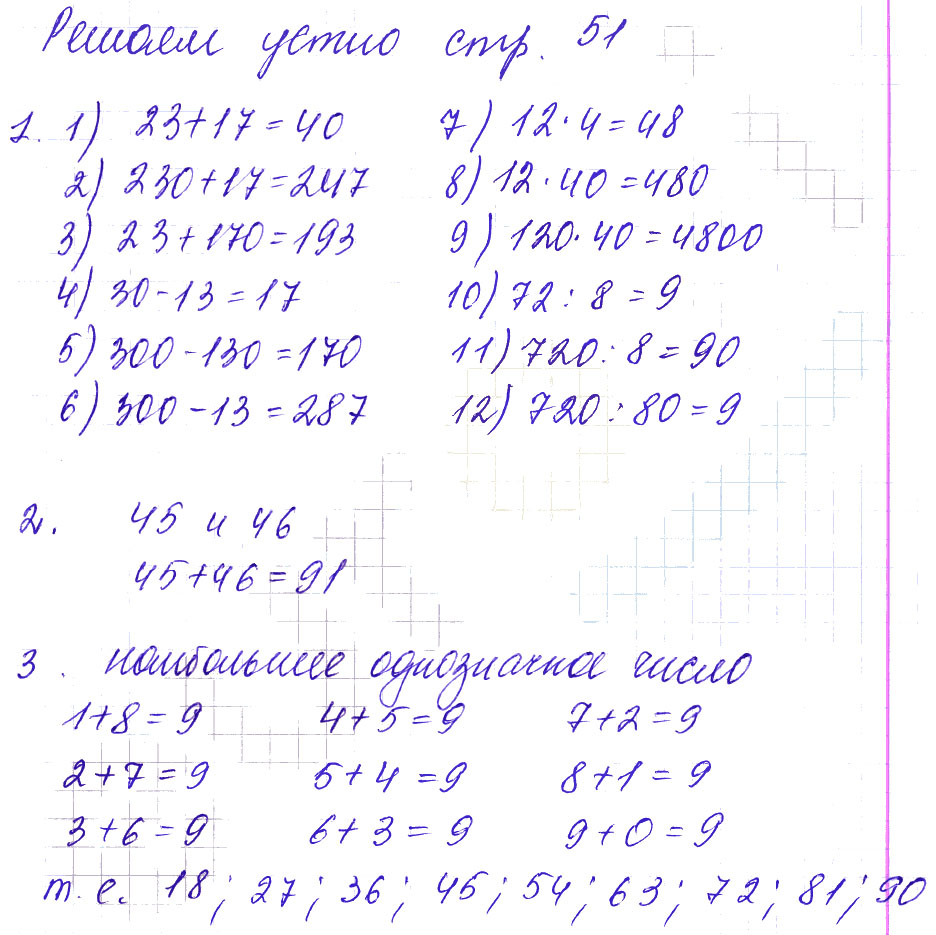 Решаем устно стр. 51
1. 1) 23+17=40 7) 12·4=48
2) 230+17=247 8) 12·40=480
3) 23+170=193 9) 120·40=4800
4) 30-13=17 10) 72:8=9
5) 300-130=170 11) 720:8=90
6) 300-13=287 12) 720:80=9
2. 45 и 46
45+46=91
3. наибольшее однозначное число
1+8=9 4+5=9 7+2=9
2+7=9 5+4=9 8+1=9
3+6=9 6+3=9 9+0=9
т.е. 18; 27; 36; 45; 54; 63; 72; 81; 90